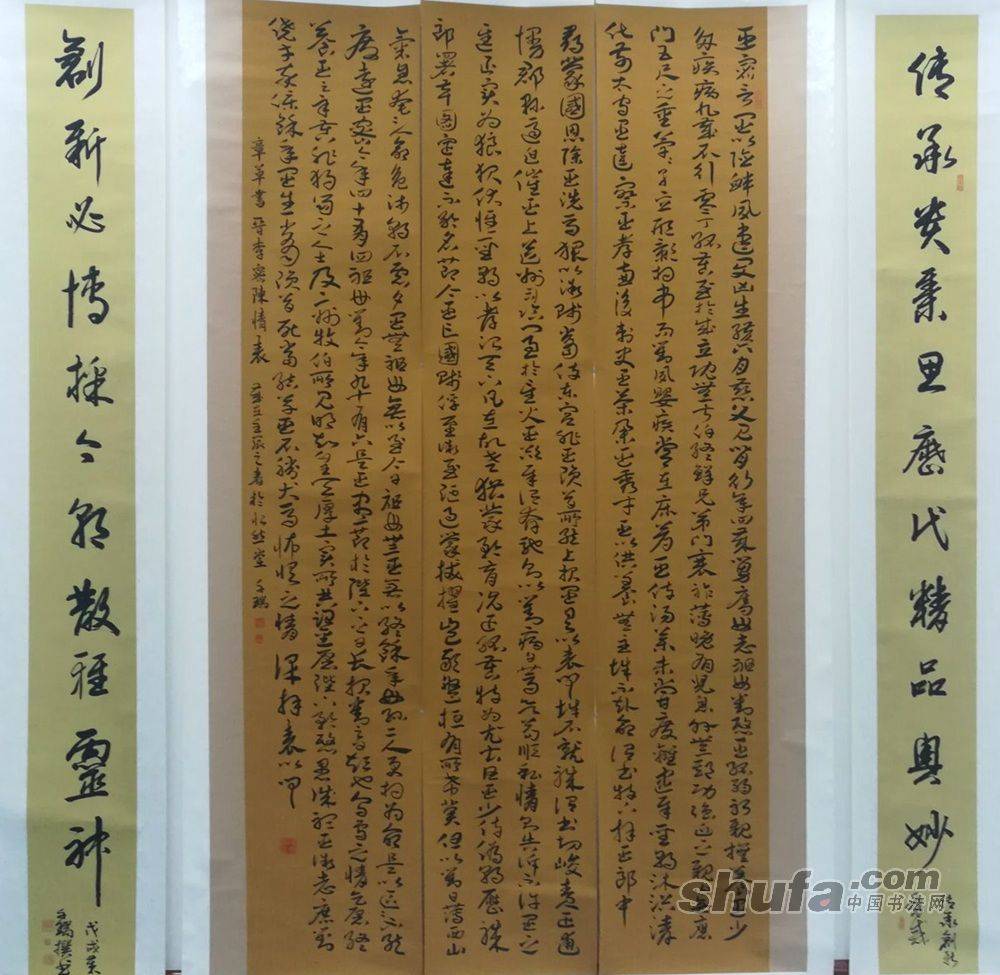 传承贵集思歷代精品奥妙
臣密言臣以險釁夙遭閔凶生孩六月慈父見背行年四歲舅奪母志祖母劉愍臣孤弱躬親撫養臣少
多疾病九歲不行零丁孤苦至於成立既無叔伯終鮮兄弟門衰祚薄晚有兒息外無朞功强近之親內無應
門五尺之童煢煢孑立形影相弔而劉夙嬰疾常在床蓐臣侍湯藥未嘗廢離逮奉聖朝沐浴清
化前太守臣逵察臣孝廉後刺史臣榮舉臣秀才臣以供養無主辭不赴命詔書特下拜臣郎中
尋蒙國恩除臣洗馬猥以微賤當侍東宮非臣隕首所能上報臣具以表聞辭不就職詔書切峻責臣逋
慢郡縣逼迫催臣上道州司臨門急於星火臣欲奉詔奔馳則以劉病日篤欲苟順私情則告訴不許臣之
進退實為狼狽伏惟聖朝以孝治天下凡在故老猶蒙矜育況臣孤苦特為尤甚且臣少侍偽朝歷職
郎署本圖宦達不矜名節今臣亡國賤俘至微至陋過蒙拔擢豈敢盤桓有所希冀但以劉日薄西山
氣息奄奄人命危淺朝不慮夕臣無祖母無以至今日祖母無臣無以終餘年母孫二人更相為命是以區區不能
廢遠臣密今年四十有四祖母劉今年九十有六是臣盡節於陛下之日長報劉之日短也烏鳥之情願乞終
養臣之辛苦非獨蜀之人士及二州牧伯所見明知皇天厚土實所共鑒願陛下矜愍愚誠聽臣微志庶劉
僥倖保餘年臣生當隕首死當結草臣不勝犬馬怖懼之情謹拜表以聞
章草書晉李密陳情表
創新必博採今朝散雅靈神
戊戌
撰書
shufa.com
中国书法网